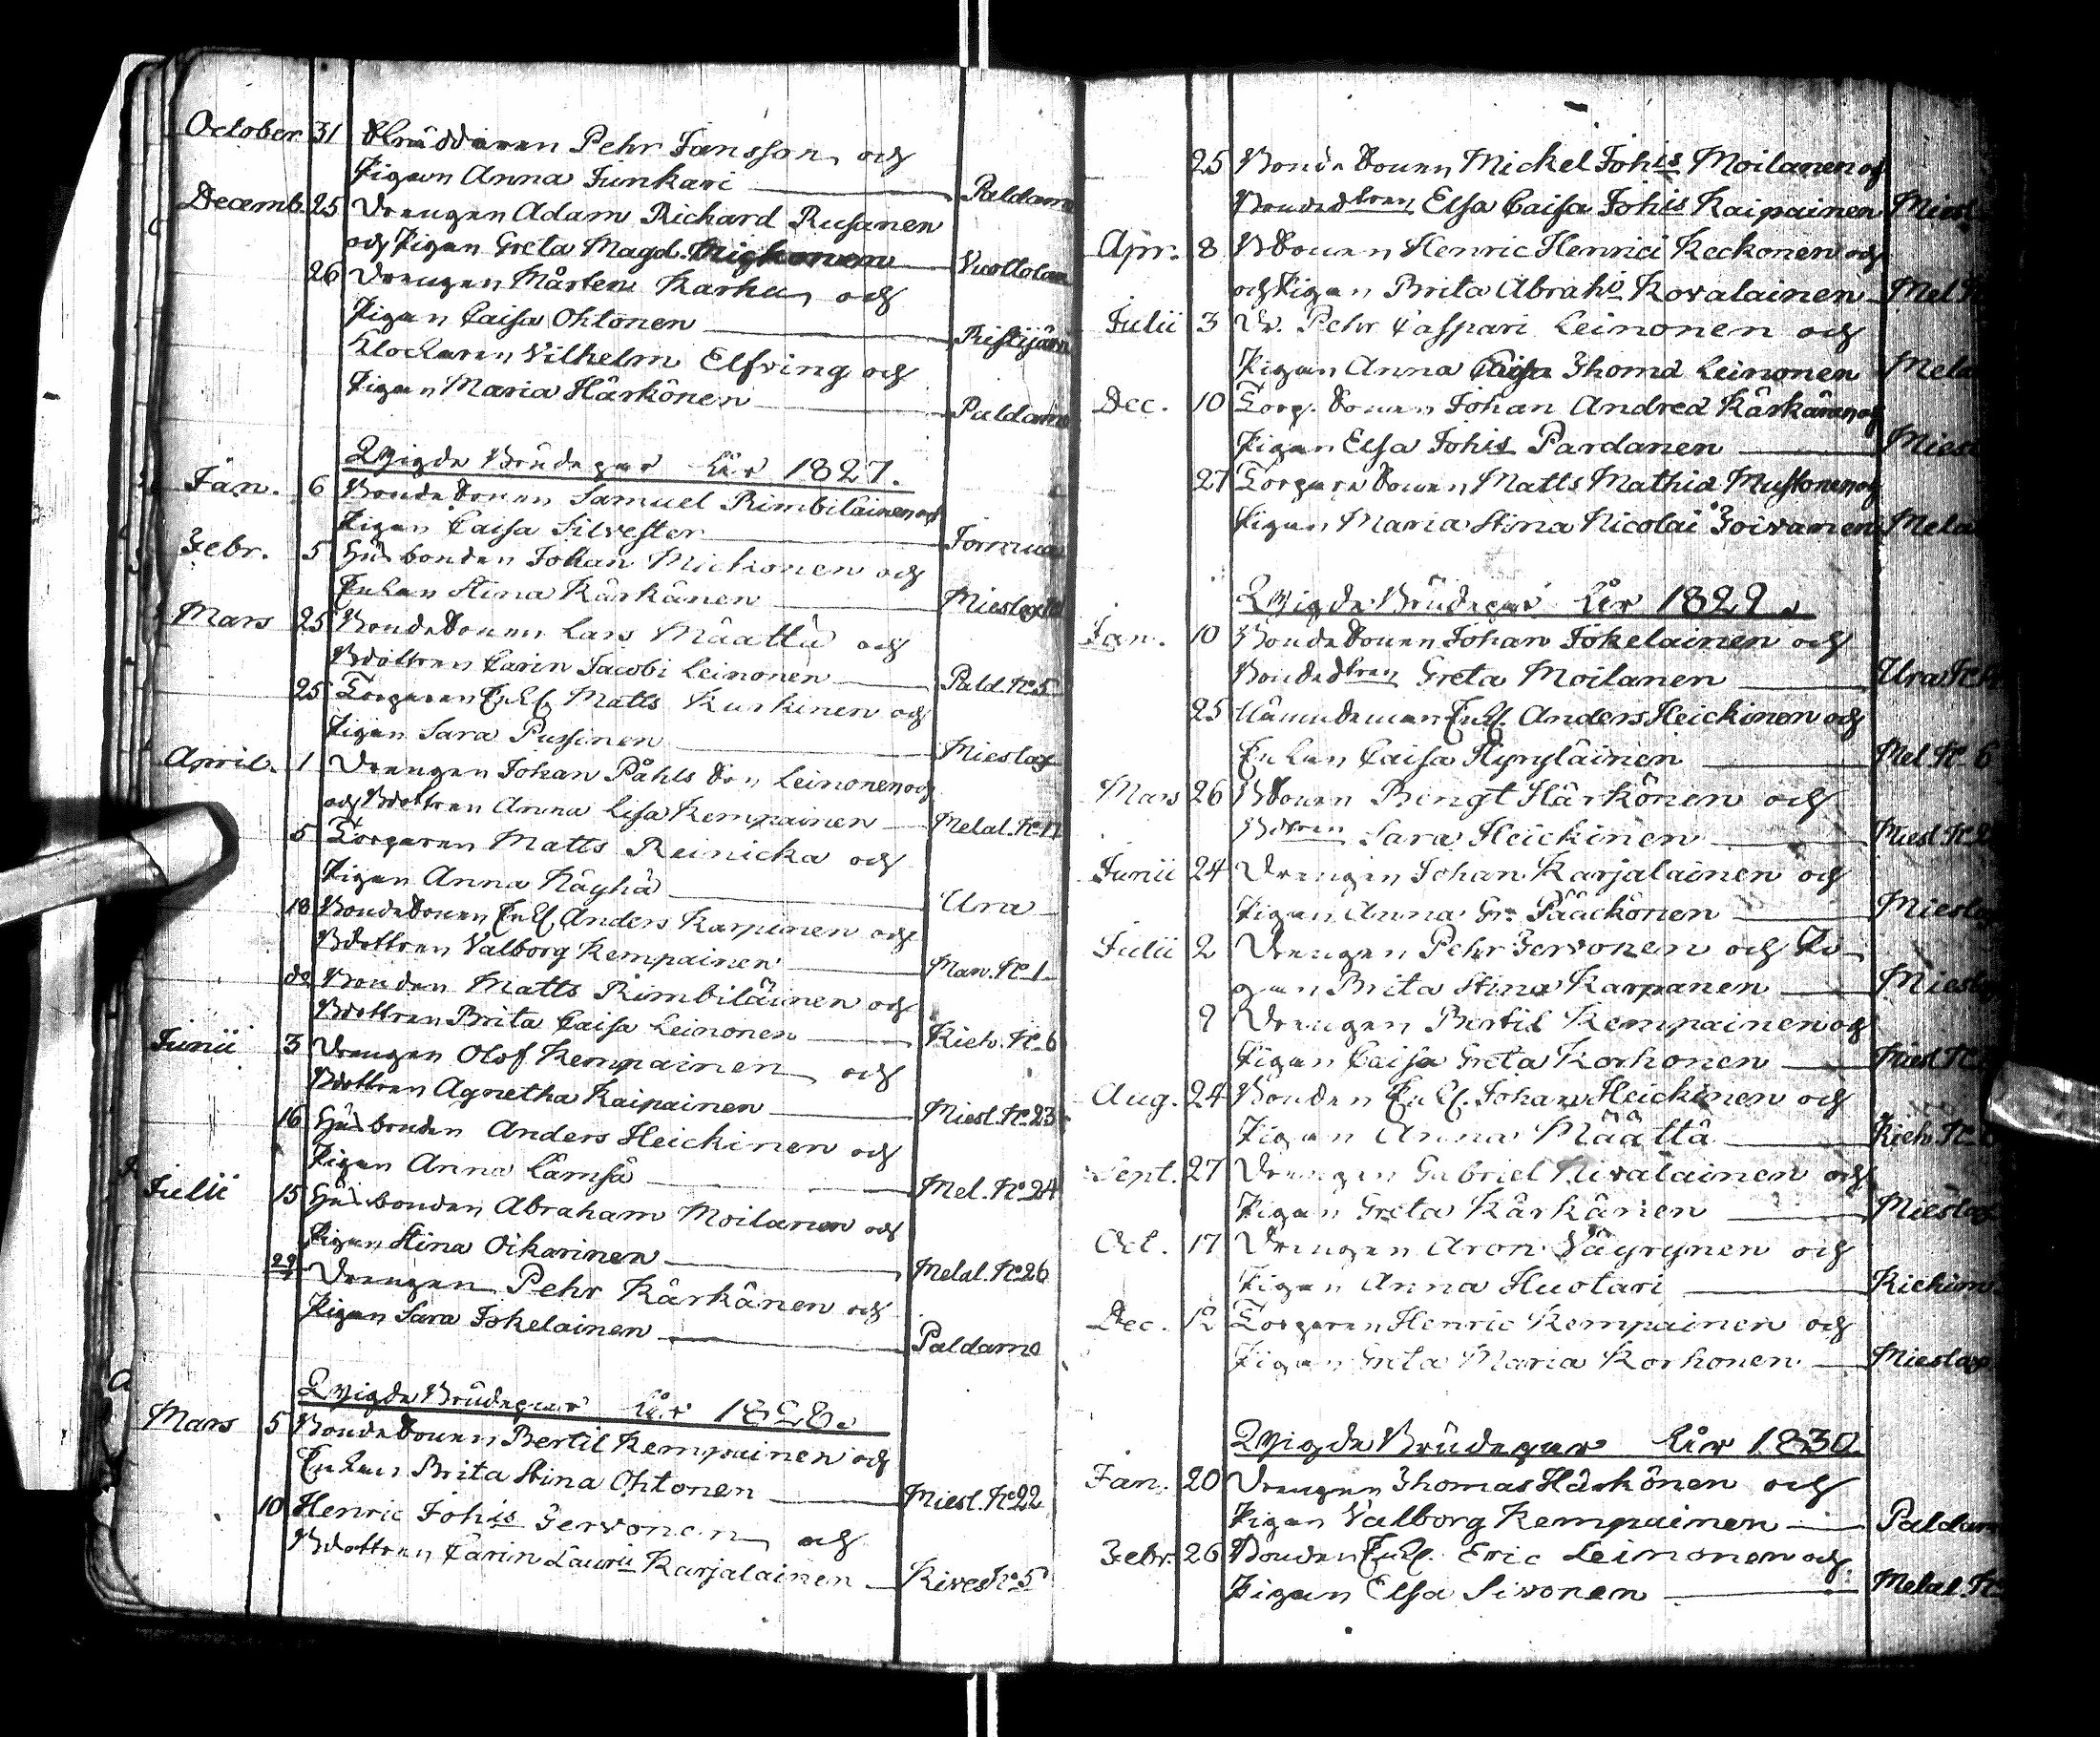 October. 31 Skräddaren Pehr Jansson och
Pigan Anna Junkari Paldamo
Decemb. 25 Drengen Adam Richard Rusanen
och Pigan Greta Magd. Vuottolam
26 Drengen Mårten Karhu och
Pigan Caisa Ohtonen Ristijärvi
Klockaren Vilhelm Elfving och
Pigan Maria Härkönen Paldamo
Wigde Brudepar År 1827.
Jan. 6 BondeSonen Samuel Rimbiläinen och
Pigan Caisa Silvester Jormua
Febr. 5 Husbonden Johan Michonen och
Enkan Stina Kärkänen Mieslax
Mars 25 BondeSonen Lars Määttä och
Bdottren Carin Jacobi Leinonen Pald. No 5
25 Torparen Enkl. Matts Kurkinen och
Pigan Sara Pussinen Mieslax
April. 1 Drengen Johan Påhls Son Leinonen och
och Bdottren Anna Lisa Kempainen Melal. No 17
5 Torparen Matts Reinicka och
Pigan Anna Käyhä Ura
18 BondeSonen Enkl. Anders Karpinen och
Bdottren Valborg Kempainen Man. No 1
do Bonden Matts Rimbiläinen och
Bdottren Brita Caisa Leinonen Kieh. No 6
Junii 3 Drengen Olof Kempainen och
Bdottren Agnetha Kaipainen Miesl. No 23
16 Husbonden Anders Heickinen och
Pigan Anna Lämsä Mel. No 24
Julii 15 Husbonden Abraham Moilanen och
Pigan Stina Oikarinen Melal. No 26
29 Drengen Pehr Kärkänen och
Pigan Sara Jokelainen Paldamo
Wigde Brudepar År 1828.
Mars 5 BondeSonen Bertil Kempainen och
Enkan Brita Stina Ohtonen Miesl. No 22
10 Henric Johis Jervonen och
Bdottren Carin Laurii Karjalainen Kives No 5
25 BondeSonen Mickel Johis Moilanen och
Bondedtren Elsa Caisa Johis Kaipainen Miesl
Apr. 8 BSonen Henric Henrici Keckonen och
och Pigan Brita Abrahi Kovalainen Mel
Julii 3 Dr. Pehr Caspari Leinonen och
Pigan Anna Caisa Thomæ Leinonen Mela
Dec. 10 Torp. Sonen Johan Andreæ Kärkänen och
Pigan Elsa Johis Pardanen Miesl
27 Torpare Sonen Matts Mathiæ Mustonen och
Pigan Maria Stina Nicolai Toivanen Mela
Wigde Brudepar År 1829.
Jan. 10 BondeSonen Johan Jokelainen och
Bondedtren Greta Moilanen Ura No
25 Nämndeman Enkl. Anders Heickinen och
Enkan Caisa Hyryläinen Mel No 6
Mars 26 BSonen Bengt Härkönen och
Bdtren Sara Heickinen Miesl. No 2
Junii 24 Drengen Johan Karjalainen och
Pigan Anna Gr. Pääckönen Mieslax
Julii 2 Drengen Pehr Jervonen och Pi
gan Brita Stina Karpanen Mieslax
9 Drengen Bertil Kempainen och
Pigan Caisa Greta Korhonen Miesl. No
Aug. 24 Bonden Enkl. Johan Heickinen och
Pigan Anna Määttä Kieh. No
Sept. 27 Drengen Gabriel Kivalainen och
Pigan Greta Kärkänen Mieslax
Oct. 17 Drengen Aron Väyrynen och
Pigan Anna Huotari Kiehim
Dec. 12 Torparen Henric Kempainen och
Pigan Greta Maria Korhonen Mieslax
Wigde Brudepar År 1830
Jan. 20 Drengen Thomas Härkönen och
Pigan Valborg Kempainen Paldam
Febr. 26 Bonden Enkl. Eric Leinonen och
Pigan Elsa Sivonen Melal. No